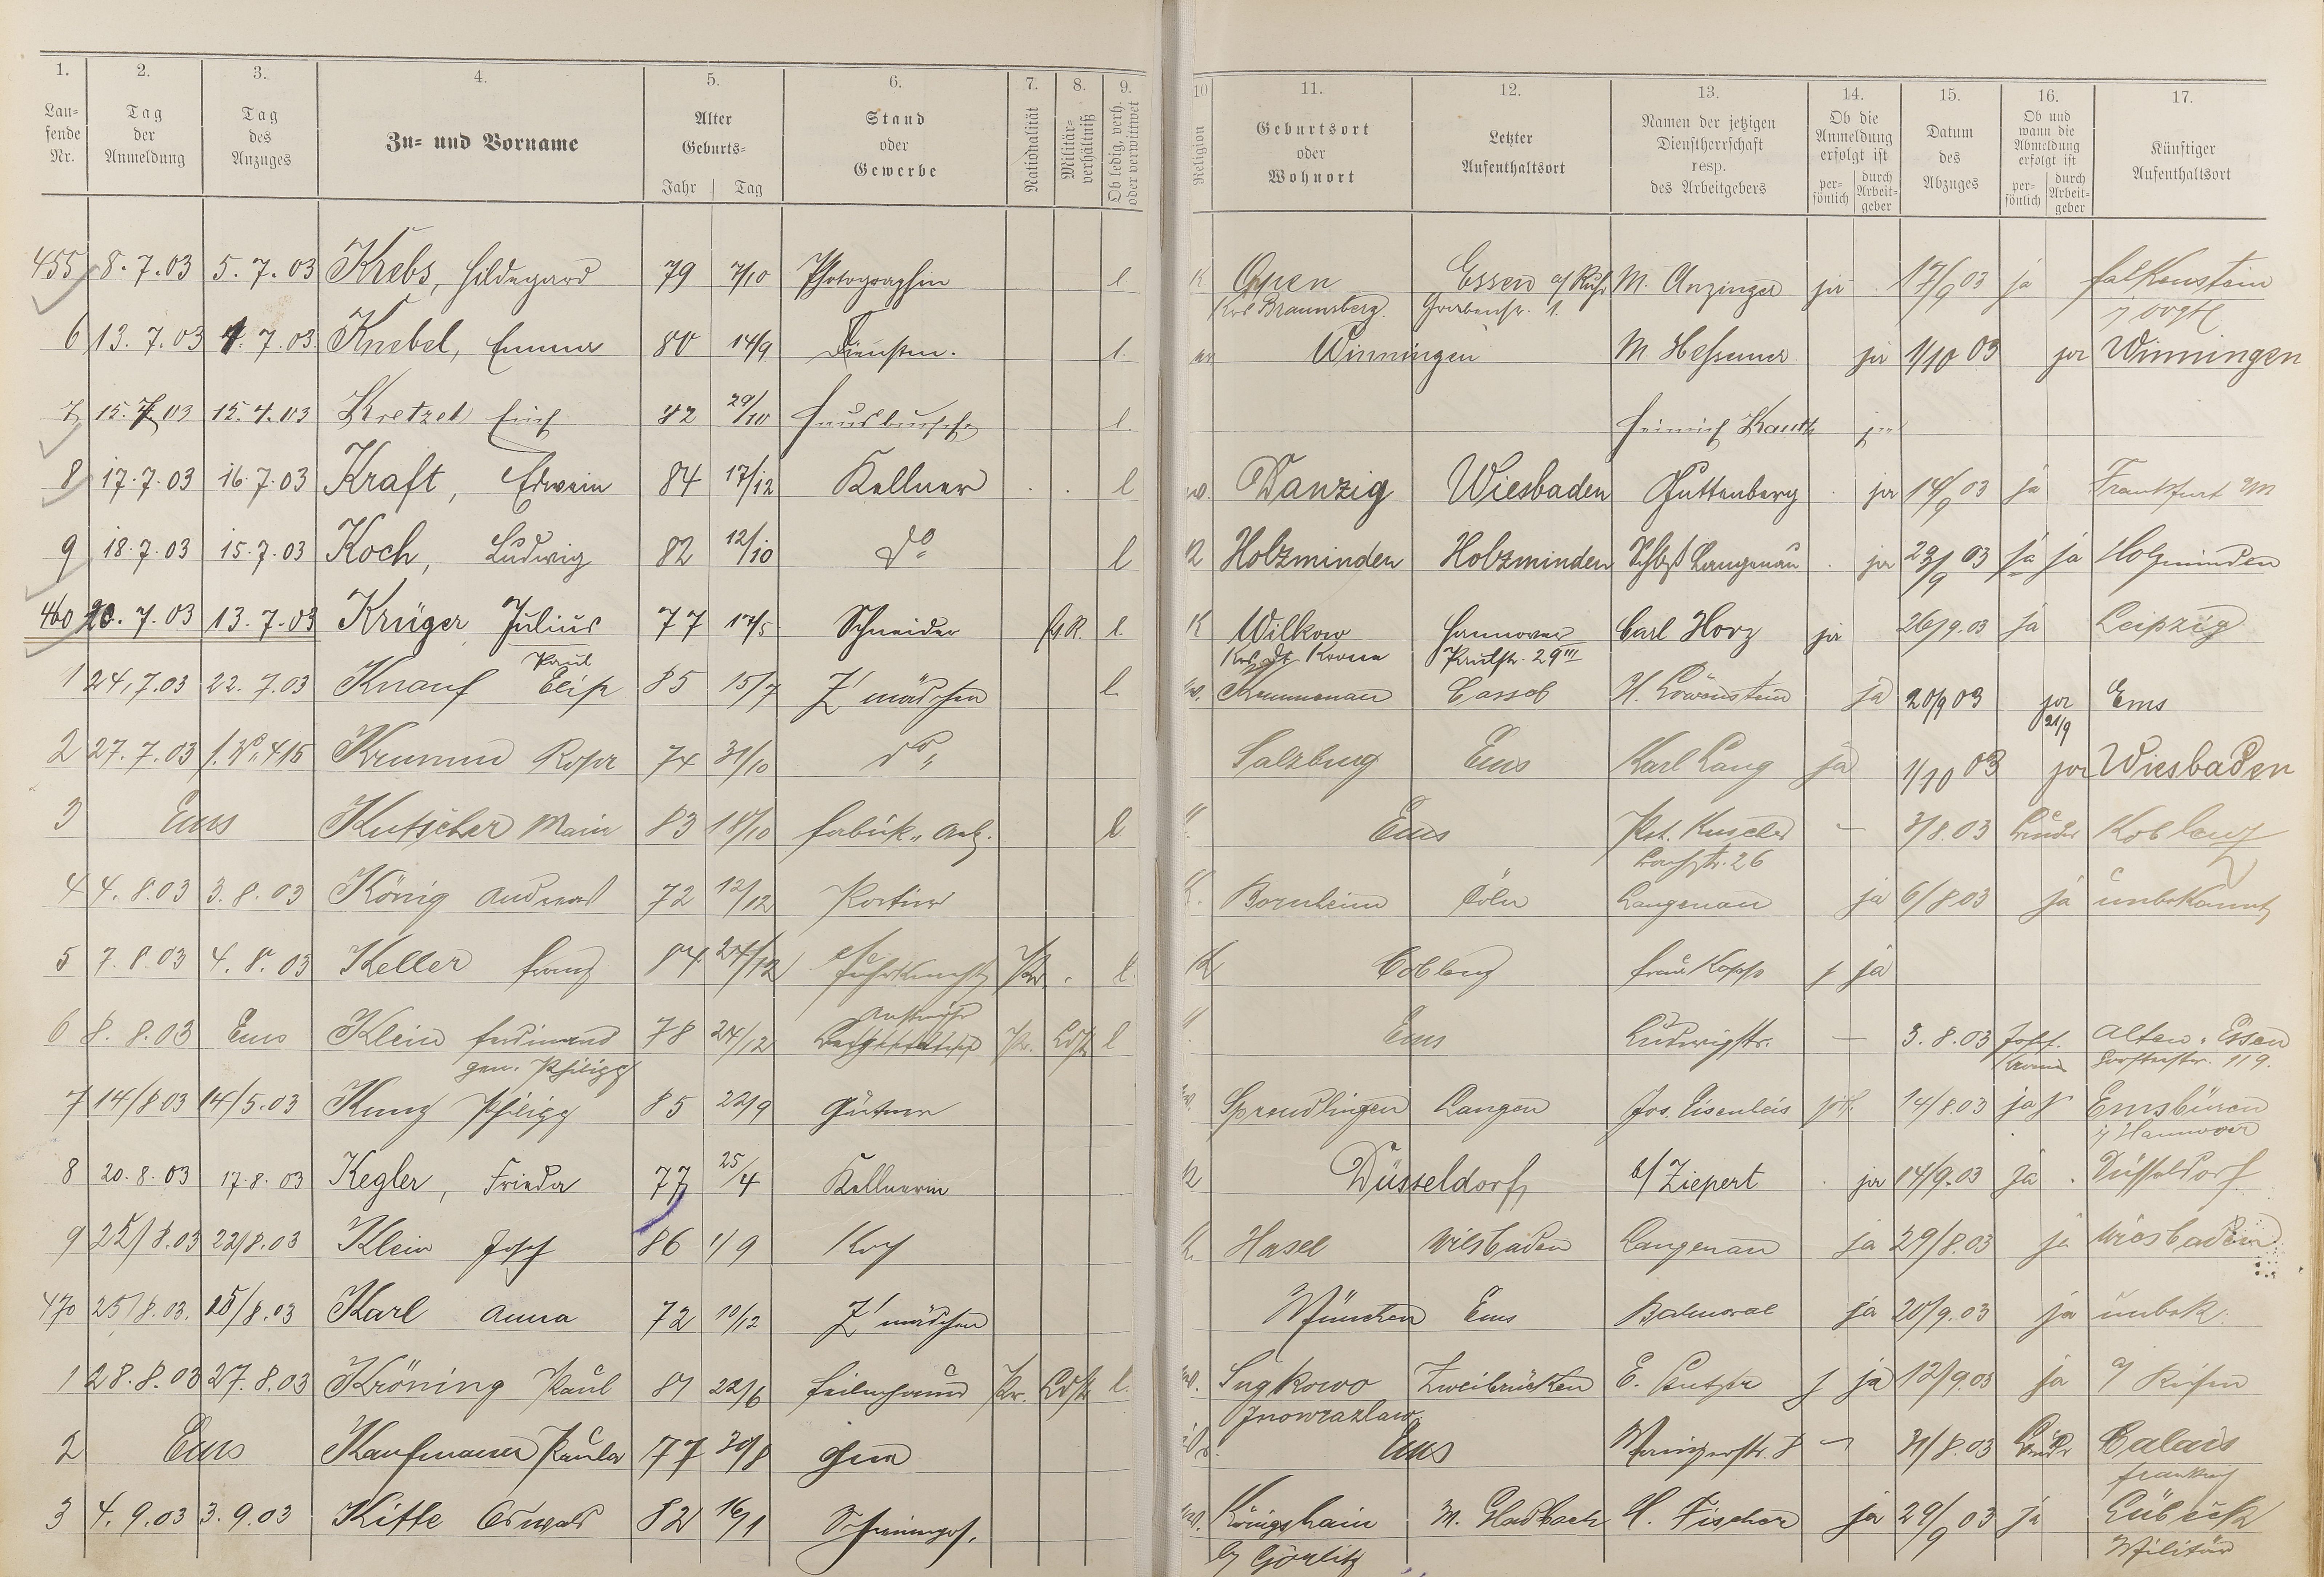 1. 2. 3. 4. 5. 6. 7. 8. 9. 10 11. 12. 13. 14. 15. 16. 17.
Laufende Nr. Tag der Anmeldung Tag des Anzuges Zu- und Vorname Alter Geburts- Jahr Tag Stand oder Gewerbe Nationalität Militärverhältniß Ob ledig, verh. oder verwittwet Religion Geburtsort oder Wohnort Letzter Aufenthaltsort Namen der jetzigen Dienstherrschaft resp. des Arbeitgebers Ob die Anmeldung erfolgt ist persönlich durch Arbeitgeber Datum des Abzuges Ob und wann die Abmeldung erfolgt ist persönlich durch Arbeitgeber Künftiger Aufenthaltsort
455 8.7.03 5.7.03 Krebs, Hildegard 79 7/10 Photographin l K Open Essen a/Ruhr M. Anzinger ja 17/9 03 ja Falkenstein
Krs Braunsberg. 1. i/ Vogtl
6 13.7.03 4.7.03. Knebel, Emma 80 14/9 Dienstm. l. Winningen M Heßemer ja 1/10 03 ja Winningen
7 15.7.03 15.4.03 Kretzel Erich 82 29/10 Hausbursche l. Heinrich Kauth ja
8 17.7.03 16.7.03 Kraft, Edwin 84 17/12 Kellner l Danzig Wiesbaden Guttenberg ja 14/9 03 ja Frankfurt a/M
9 18.7.03 15.7.03 Koch, Ludwig 82 12/10 do l K Holzminden Holzminden Schloß Langenau ja 23/9 03 ja ja Holzminden
460 20.7.03 13.7.03 Krüger Julius 77 17/5 Schneider l. K Wilkow Hannover Carl Horz ja 26/9.03 ja Leipzig
Paul Krs Dt Krone Paulstr. 29III
1 24.7.03 22.7.03 Knauf Elise 85 15/7 Z'mädchen l Kemmenau Cassel H. Löwenstein ja 20/9 03 ja Ems
21/9
2 27.7.03 f. No 415 Krumm Rosa 74 31/10 do Salzburg Ems Karl Lang ja 1/10 03 ja Wiesbaden
3 Ems Kutscher Maria 83 18/10 Fabrik-Arb. l " Ems Pet. Kuscher — 3/8.03 Bruder Koblenz
26
4 4.8.03 3.8.03 König Andreas 72 12/12 Portier K. Bornheim Cöln Langenau ja 6/8.03 ja unbekannt
5 7.8.03 4.8.03 Keller Franz 84 24/12 Fuhrknecht Pr. l. K Coblenz Frau Kopp ja
6 8.8.03 Ems Klein Ferdinand 78 24/12 Anstreicher Pr. Ldst l " Ems Ludwigstr. — 3.8.03 Josef Alten-Essen
gen. Philipp 119.
7 14/8 03 14/5.03 Kunz Philipp 85 22/9 Gärtner Sprendlingen Langen Jos. Eisenleis 14/8.03 ja Emsbüren
i/ Hannover
8 20.8.03 17.8.03 Kegler, Frieda 77 25/4 Kellnerin K Düsseldorf b/ Ziepert ja 14/9.03 ja Düsseldorf
9 25/8.03 22/8.03 Klein Josef 86 1/9 Koch K. Hasel Wiesbaden Langenau ja 29/8.03 ja Wiesbaden
470 25/8.03. 25/8.03 Karl Anna 72 10/12 Z'mädchen München Ems Balmoral ja 20/9.03 ja unbek.
1 28.8.03 27.8.03 Kröning Paul 81 22/6 Pr. Ldst l. Zweibrücken E. ja 12/9.03 ja a/ Reisen
Inowrazlaw
2 Ems Kaufmann Paula 77 30/8 Ems Mainzerstr. 8 31/8.03 Bruder Calais
Frankreich
3 4.9.03 3.9.03 Kitte Oswald 82 16/1 Schreinerges. Königshain M. Gladbach H. Fischer ja 29/9 03 ja Lübeck
b/ Görlitz Militär